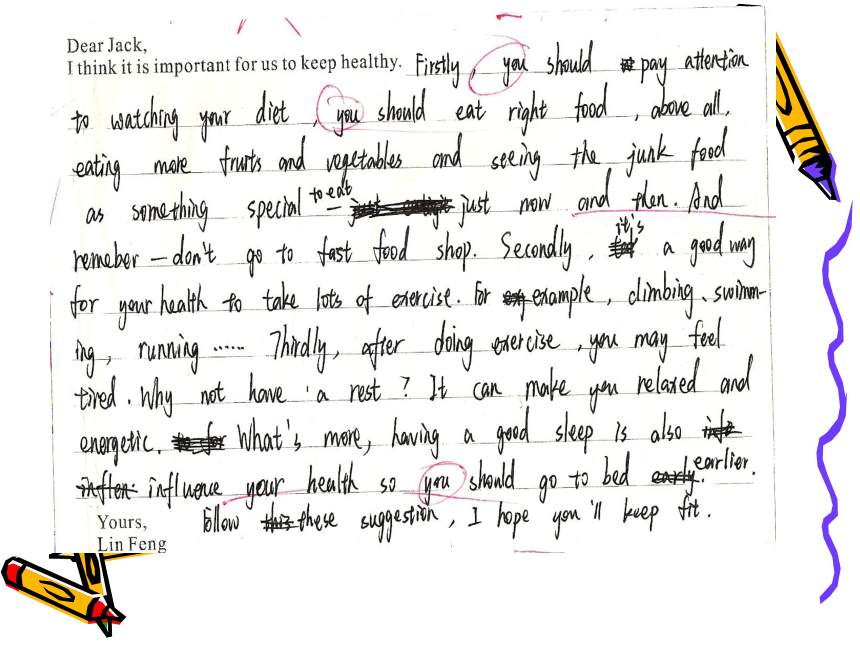 Dear Jack,
I think it is important for us to keep healthy. Firstly, you should pay attention
to watching your diet, you should eat right food, above all,
eating more fruits and vegetables and seeing the junk food
as something special — to eat just now and then. And
remeber — don't go to fast food shop. Secondly, it's a good way
for your health to take lots of exercise. For example, climbing、swimm-
ing, running ...... Thirdly, after doing exercise, you may feel
tired. Why not have a rest? It can make you relaxed and
energetic. What's more, having a good sleep is also
influence your health so you should go to bed earlier.
Follow these suggestion, I hope you'll keep fit.
Yours,
Lin Feng